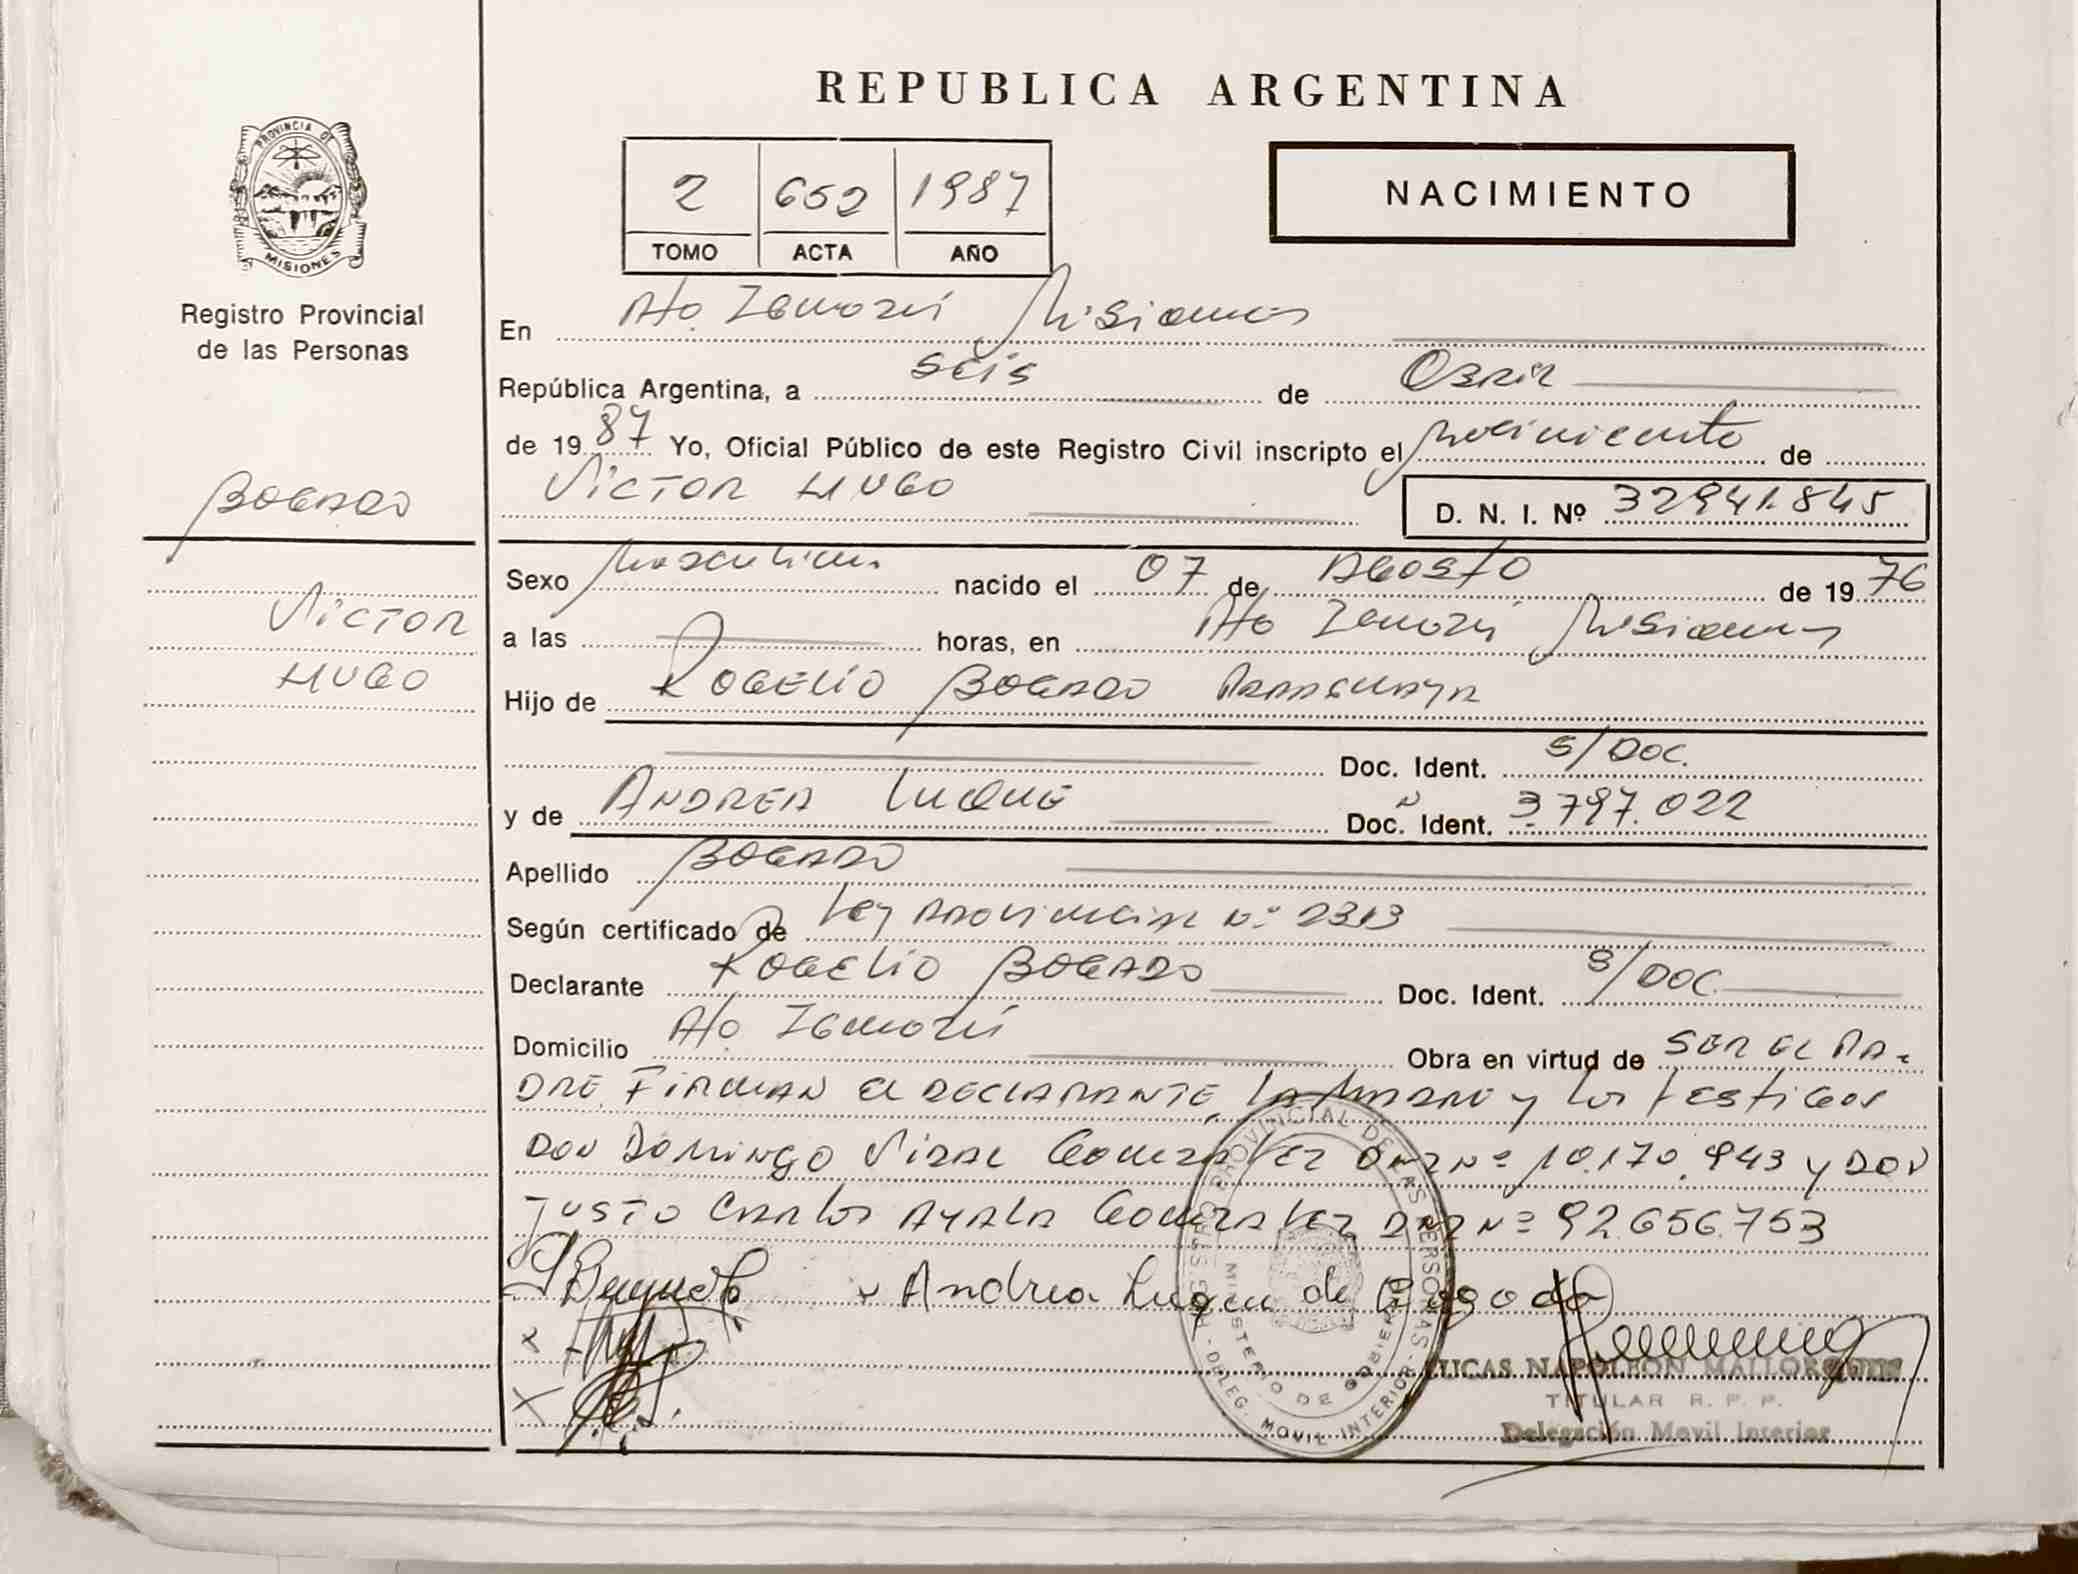 REPUBLICA ARGENTINA
PROVINCIA DE
MISIONES
Registro Provincial
de las Personas
2 652 1987
TOMO ACTA AÑO
NACIMIENTO
En Aº Misiones
República Argentina, a seis de Abril
de 1987 Yo, Oficial Público de este Registro Civil inscripto el nacimiento de
VICTOR HUGO D. N. I. Nº 32941845
BOGADO
VICTOR
HUGO
Sexo Masculino nacido el 07 de AGOSTO de 1976
a las horas, en Aº Misiones
Hijo de ROGELIO BOGADO
Doc. Ident. S/DOC.
y de ANDREA LUQUE Doc. Ident. 3.797.022
Apellido BOGADO
Según certificado de Ley Provincial Nº 2313
Declarante ROGELIO BOGADO Doc. Ident. S/DOC
Domicilio Aº Obra en virtud de SER EL PA-
DRE. FIRMAN EL DECLARANTE, LA MADRE y los testigos
DON DOMINGO VIDAL GONZALEZ DNI Nº 10.170.943 y DON
JUSTO CARLOS AYALA GONZALEZ DNI Nº 92.656.753
Andrea Luque de Bogado
REGISTRO PROVINCIAL DE LAS PERSONAS
MINISTERIO DE GOBIERNO
DELEG. MOVIL INTERIOR
LUCAS NAPOLEON
TITULAR R. P. P.
Delegación Movil Interior